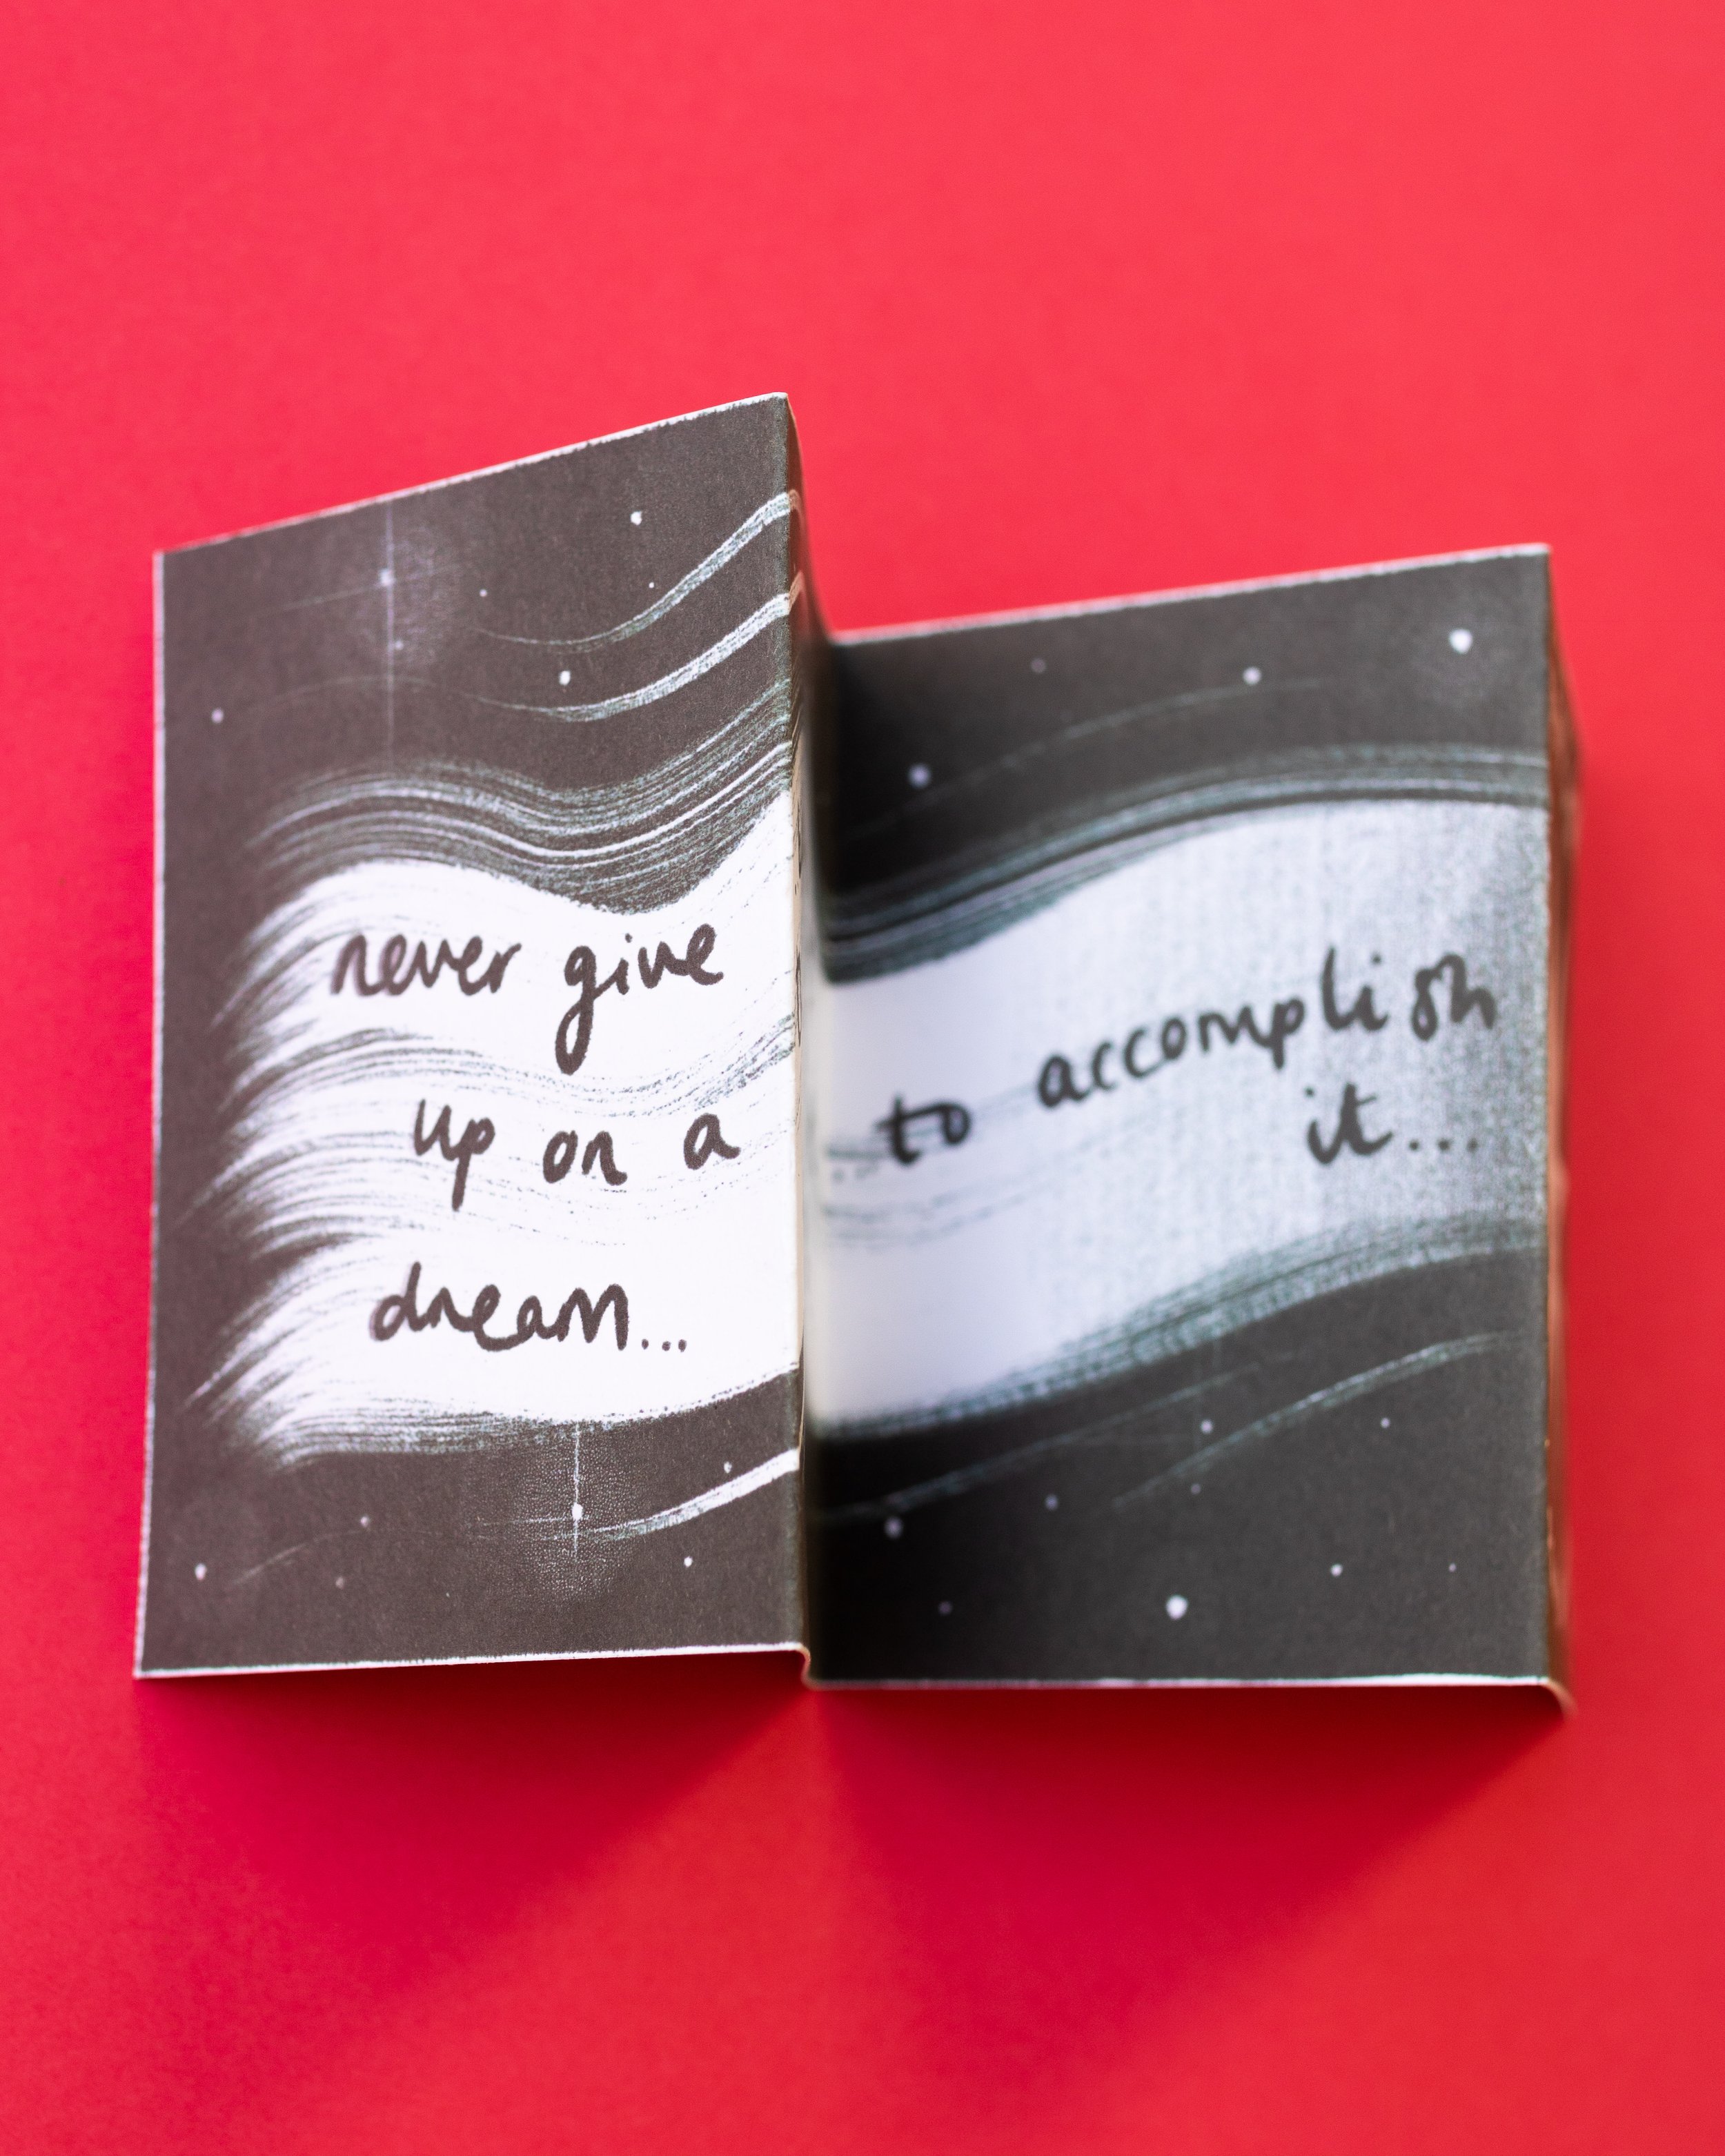 never give
up on a
dream...
to accomplish
it...